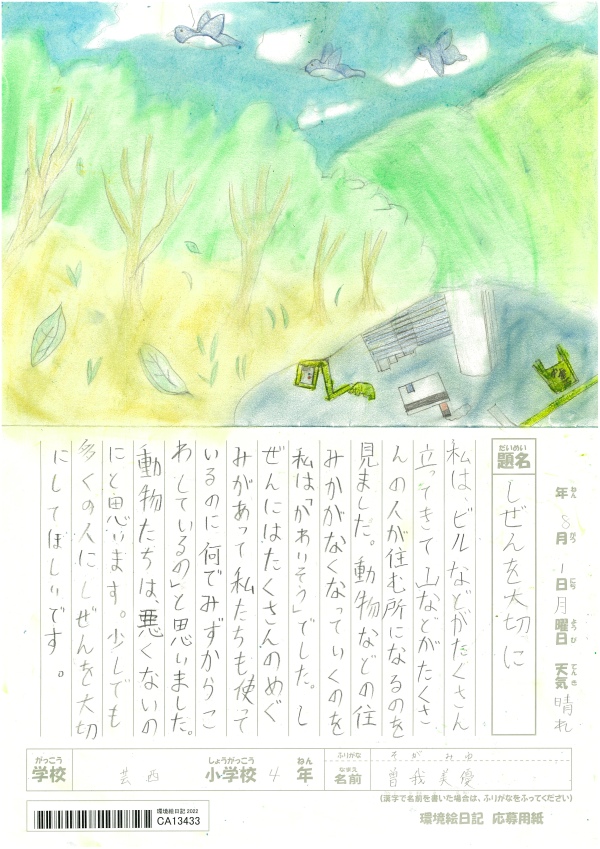 年 8月 1日 月曜日 天気 晴れ
ねん がつ にち ようび てんき
だいめい
題名
しぜんを大切に
私は、ビルなどがたくさん
立ってきて山などがたくさ
んの人が住む所になるのを
見ました。動物などの住
みかがなくなっていくのを
私は「かわいそう」でした。し
ぜんにはたくさんのめぐ
みがあって私たちも使って
いるのに何でみずからこ
わしているの」と思いました。
動物たちは、悪くないの
にと思います。少しでも
多くの人にしぜんを大切
にしてほしいです。
がっこう しょうがっこう ねん
学校 芸西 小学校 4年
ふりがな そが みゆ
なまえ
名前 曽我美優
(漢字で名前を書いた場合は、ふりがなをふってください)
環境絵日記 2022
CA13433
環境絵日記 応募用紙